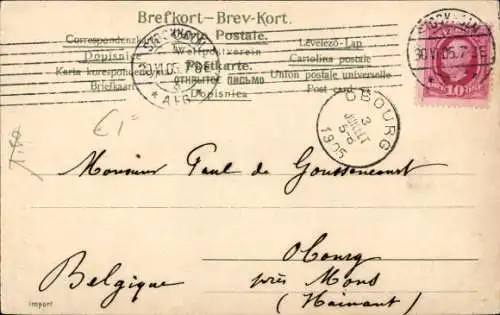 Brefkort–Brev-Kort.
Postale.
Correspondenzkarte
Dopisnice
Weltpostverein
Levelező-Lap
Cartolina postale
Karta korespondencyjna
Briefkaart
Postkarte.
ОТКРЫТОЕ ПИСЬМО
Dopisnica
Union postale universelle
Post card
STOCKHOLM
30 VI 05
10 ÖRE 10
OBOURG
3
JUILLET
5-6
1905
Monsieur Paul de Goussencourt
Obourg
près Mons
Belgique
(Hainaut)
Import